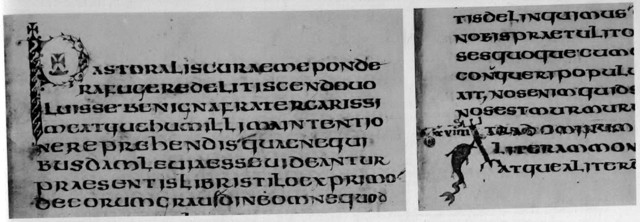 PASTORALISCURAEMEPONDE
RAFUGEREDELITISCENDOUO
LUISSEBENIGNAFRATERCARISSI
MEATQUEHUMILLIMAINTENTIO
NEREPREHENDISQUAENEQUI
BUSDAMLEUIAESSEUIDEANTUR
PRAESENTISLIBRISTILOEXPRIMO
DEEORUMGRAUIDINEOMNEQUOD
TISDELINQUIMUS
NOBISPRAETULITO
SESQUOQUECUM
CONQUERIPOPUL
AIT, NOSENIMQUIDS
NOSESTMURMURA
XVIII TRADOMINUM
ALITERAMMON
ATQUEALITERA